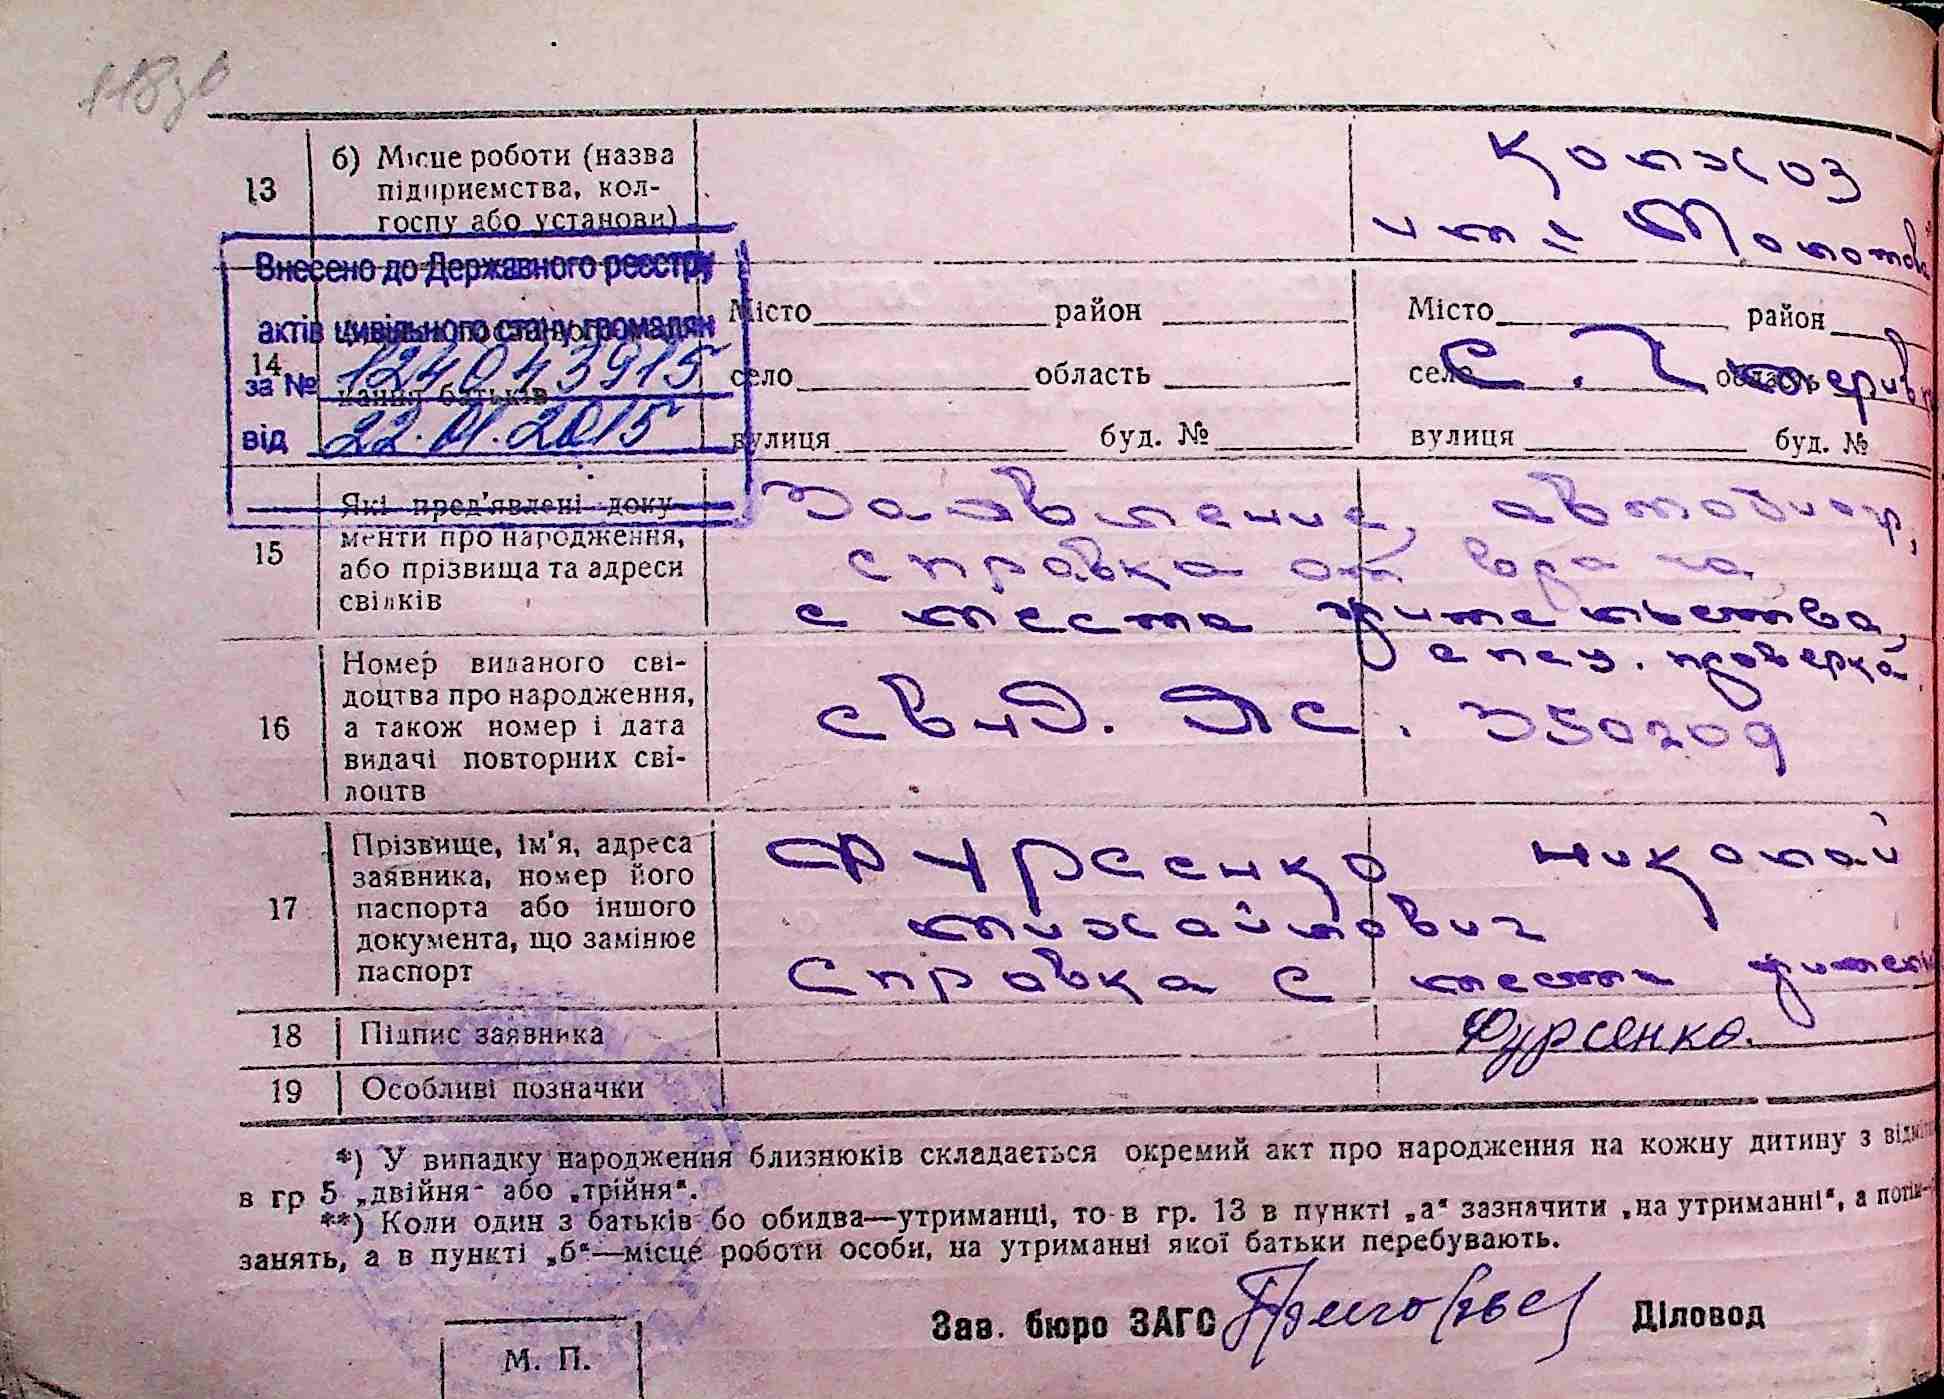 118зв
13
б) Місце роботи (назва
підприємства, кол-
госпу або установи)
Колхоз
им. Молотова
Внесено до Державного реєстру
актів цивільного стану громадян
за № 124043915
від 22.01.2015
14
кання батьків
Місто район
село область
вулиця буд. №
Місто район
село область
с.
вулиця буд. №
15
Які пред'явлені доку-
менти про народження,
або прізвища та адреси
свідків
Заявление, автобиогр,
справка от врача,
с места жительства,
спец. проверка.
16
Номер виданого сві-
доцтва про народження,
а також номер і дата
видачі повторних сві-
доцтв
свид. ЯС. 350209
17
Прізвище, ім'я, адреса
заявника, номер його
паспорта або іншого
документа, що замінює
паспорт
Фурсенко Николай
Михайлович
Справка с места
18
Підпис заявника
Фурсенко.
19
Особливі позначки
*) У випадку народження близнюків складається окремий акт про народження на кожну дитину з
в гр 5 „двійня" або „трійня".
**) Коли один з батьків бо обидва—утриманці, то в гр. 13 в пункті „а" зазначити „на утриманні", а
занять, а в пункті „б"—місце роботи особи, на утриманні якої батьки перебувають.
Зав. бюро ЗАГС
Діловод
М. П.